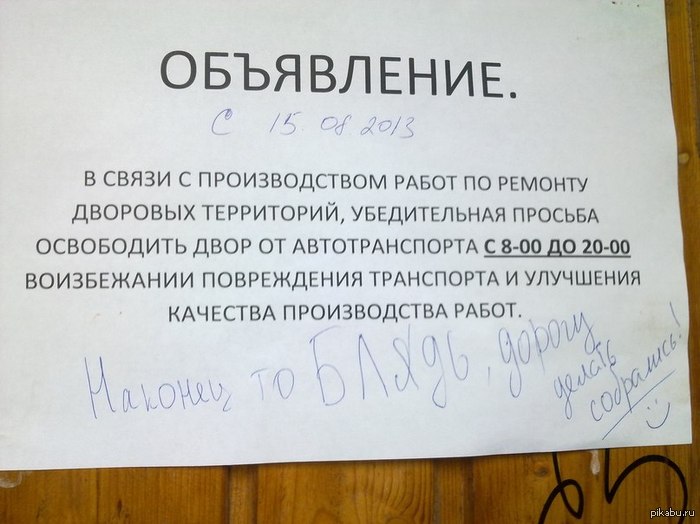 ОБЪЯВЛЕНИЕ.
С 15.08.2013
В СВЯЗИ С ПРОИЗВОДСТВОМ РАБОТ ПО РЕМОНТУ
ДВОРОВЫХ ТЕРРИТОРИЙ, УБЕДИТЕЛЬНАЯ ПРОСЬБА
ОСВОБОДИТЬ ДВОР ОТ АВТОТРАНСПОРТА С 8-00 ДО 20-00
ВОИЗБЕЖАНИИ ПОВРЕЖДЕНИЯ ТРАНСПОРТА И УЛУЧШЕНИЯ
КАЧЕСТВА ПРОИЗВОДСТВА РАБОТ.
Наконец то БЛЯДЬ, дорогу
делать
собрались!
pikabu.ru